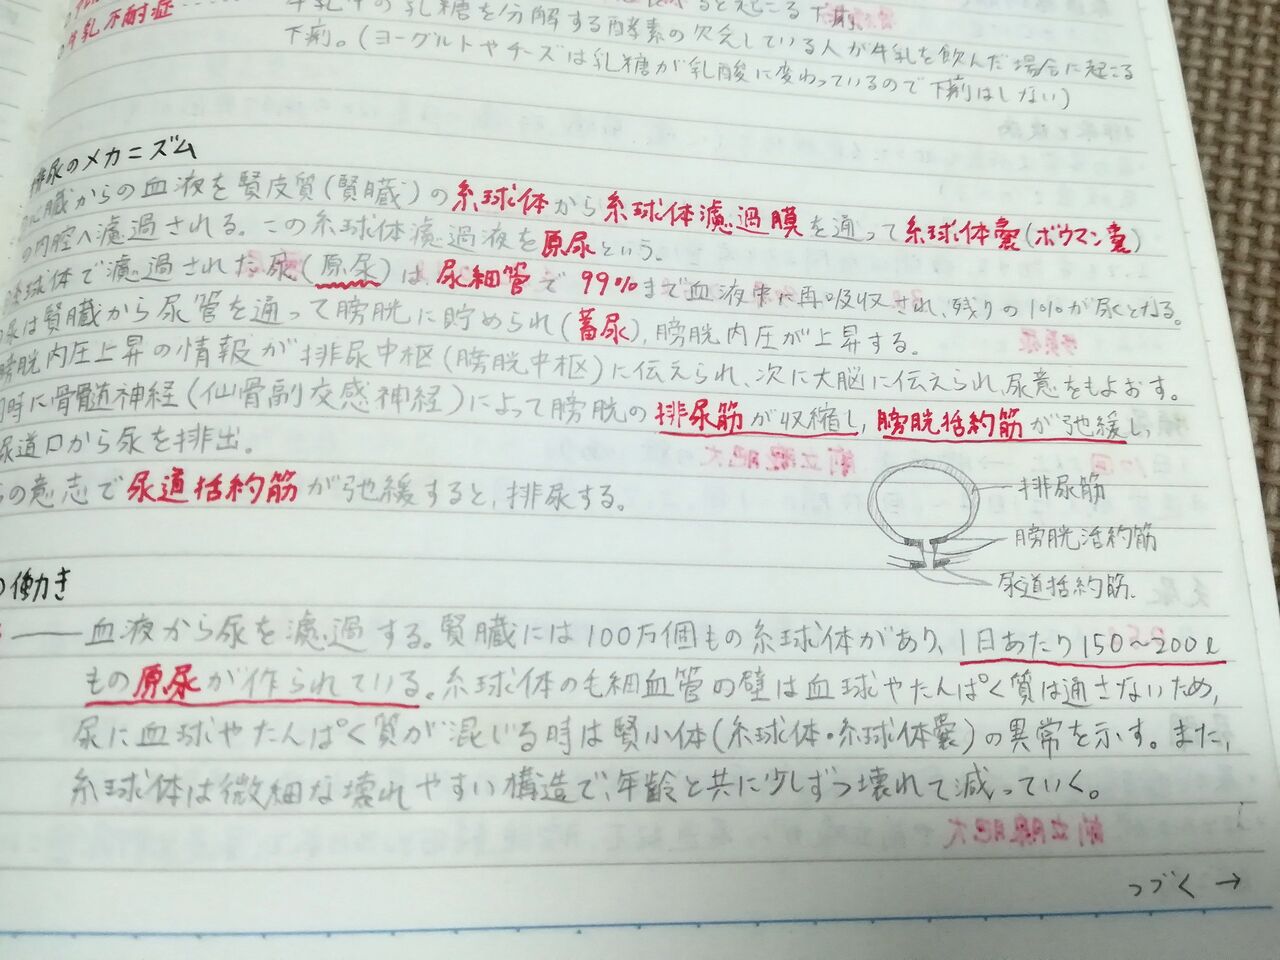 牛乳不耐症……牛乳中の乳糖を分解する酵素の欠乏している人が牛乳を飲んだ場合に起こる
下痢。(ヨーグルトやチーズは乳糖が乳酸に変わっているので下痢はしない)
排尿のメカニズム
心臓からの血液を腎皮質(腎臓)の糸球体から糸球体濾過膜を通って糸球体嚢(ボウマン嚢)
の内腔へ濾過される。この糸球体濾過液を原尿という。
糸球体で濾過された尿(原尿)は尿細管で99%まで血液中に再吸収され、残りの1%が尿となる。
尿は腎臓から尿管を通って膀胱に貯められ(蓄尿)、膀胱内圧が上昇する。
膀胱内圧上昇の情報が排尿中枢(膀胱中枢)に伝えられ、次に大脳に伝えられ、尿意をもよおす。
同時に骨髄神経(仙骨副交感神経)によって膀胱の排尿筋が収縮し、膀胱括約筋が弛緩し、
尿道口から尿を排出。
の意志で尿道括約筋が弛緩すると、排尿する。
排尿筋
膀胱活約筋
尿道括約筋
の働き
血液から尿を濾過する。腎臓には100万個もの糸球体があり、1日あたり150~200ℓ
もの原尿が作られている。糸球体の毛細血管の壁は血球やたんぱく質は通さないため、
尿に血球やたんぱく質が混じる時は腎小体(糸球体・糸球体嚢)の異常を示す。また、
糸球体は微細な壊れやすい構造で、年齢と共に少しずつ壊れて減っていく。
つづく→